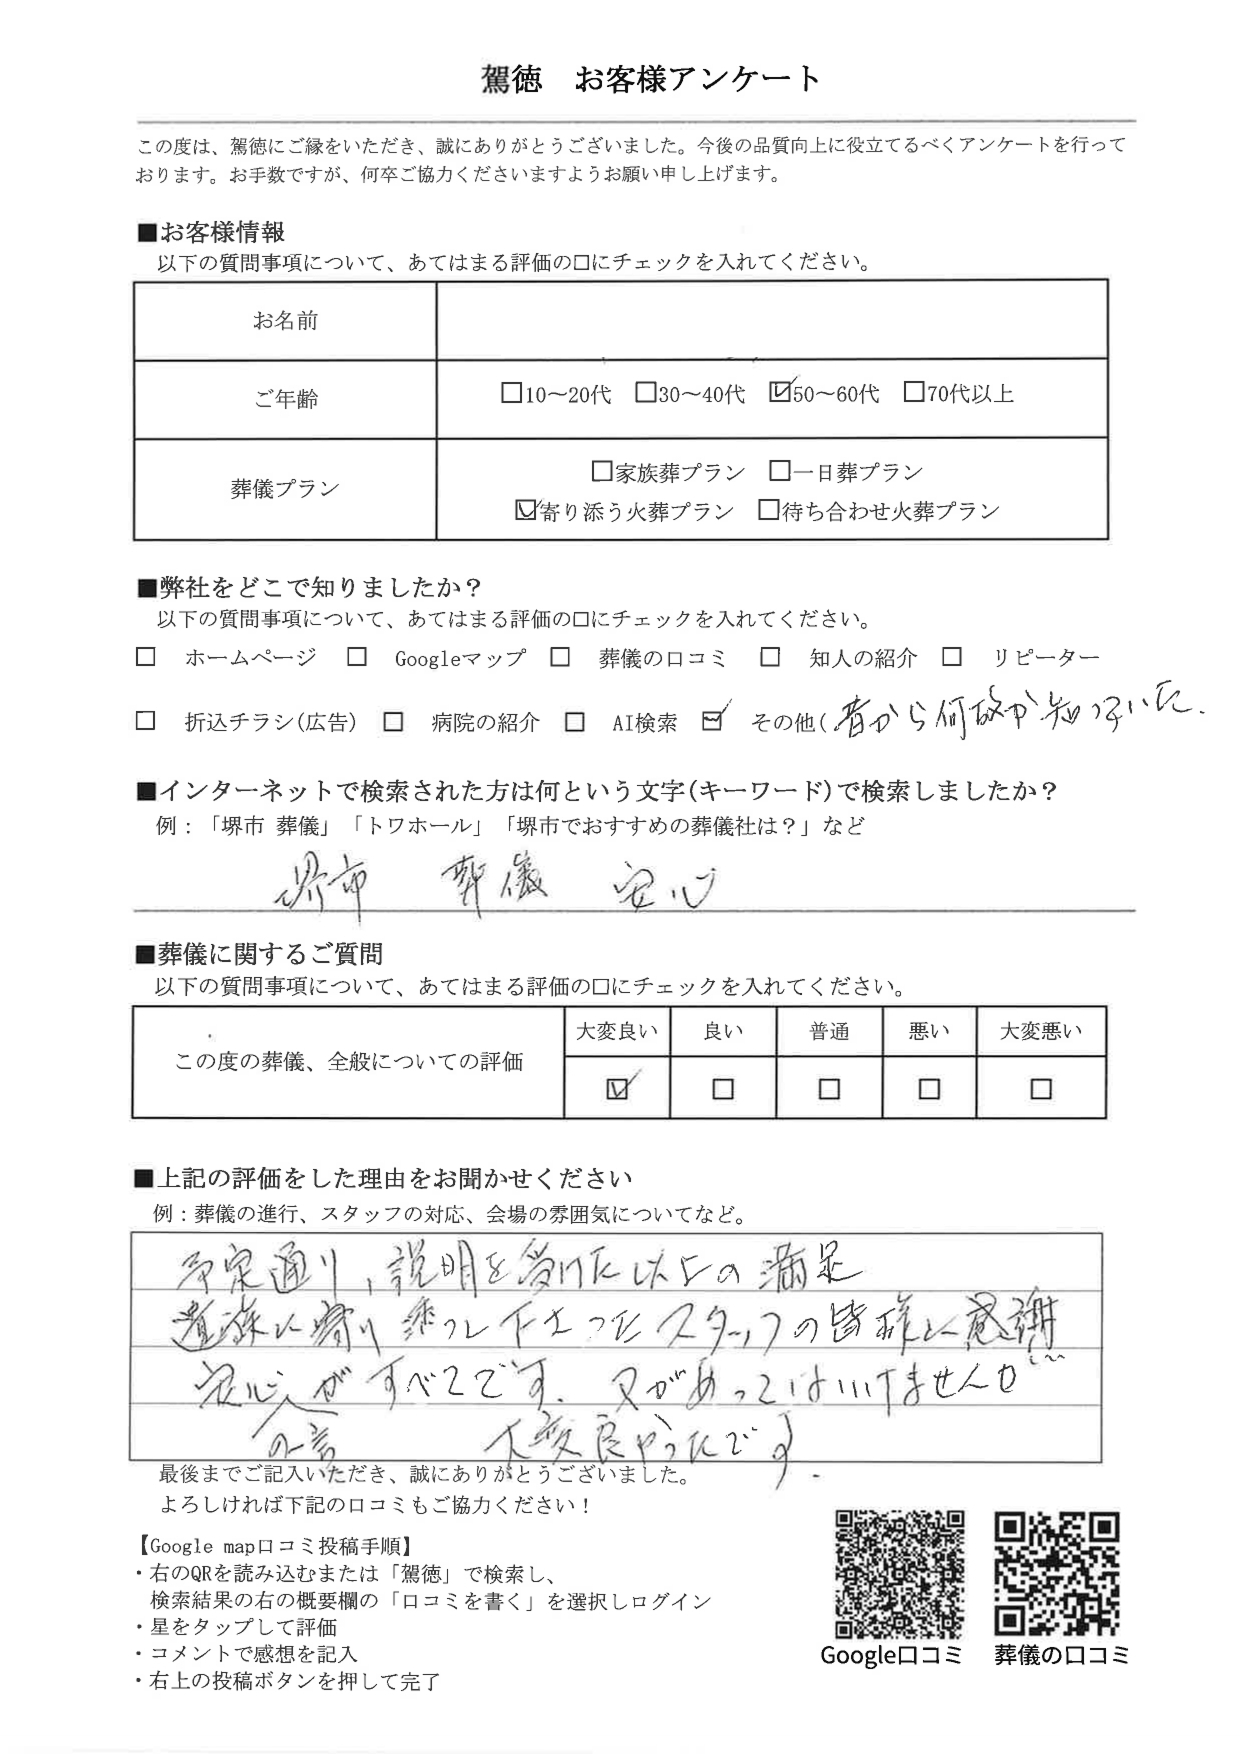 駕徳　お客様アンケート
この度は、駕徳にご縁をいただき、誠にありがとうございました。今後の品質向上に役立てるべくアンケートを行って
おります。お手数ですが、何卒ご協力くださいますようお願い申し上げます。
■お客様情報
以下の質問事項について、あてはまる評価の口にチェックを入れてください。
お名前
ご年齢
□10～20代　□30～40代　☑50～60代　□70代以上
葬儀プラン
□家族葬プラン　□一日葬プラン
☑寄り添う火葬プラン　□待ち合わせ火葬プラン
■弊社をどこで知りましたか？
以下の質問事項について、あてはまる評価の口にチェックを入れてください。
□　ホームページ　□　Googleマップ　□　葬儀の口コミ　□　知人の紹介　□　リピーター
□　折込チラシ(広告)　□　病院の紹介　□　AI検索　☑　その他(昔から何故か知っていた.
■インターネットで検索された方は何という文字(キーワード)で検索しましたか？
例：「堺市 葬儀」「トワホール」「堺市でおすすめの葬儀社は？」など
堺市　葬儀　安心
■葬儀に関するご質問
以下の質問事項について、あてはまる評価の口にチェックを入れてください。
この度の葬儀、全般についての評価
大変良い　良い　普通　悪い　大変悪い
☑　□　□　□　□
■上記の評価をした理由をお聞かせください
例：葬儀の進行、スタッフの対応、会場の雰囲気についてなど。
予定通り、説明を受けた以上の満足
遺族に寄り添って下さったスタッフの皆様に感謝
安心がすべてです. 又があってはいけませんが…
の言　大変良かったです.
最後までご記入いただき、誠にありがとうございました。
よろしければ下記の口コミもご協力ください！
【Google map口コミ投稿手順】
・右のQRを読み込むまたは「駕徳」で検索し、
検索結果の右の概要欄の「口コミを書く」を選択しログイン
・星をタップして評価
・コメントで感想を記入
・右上の投稿ボタンを押して完了
Google口コミ　葬儀の口コミ